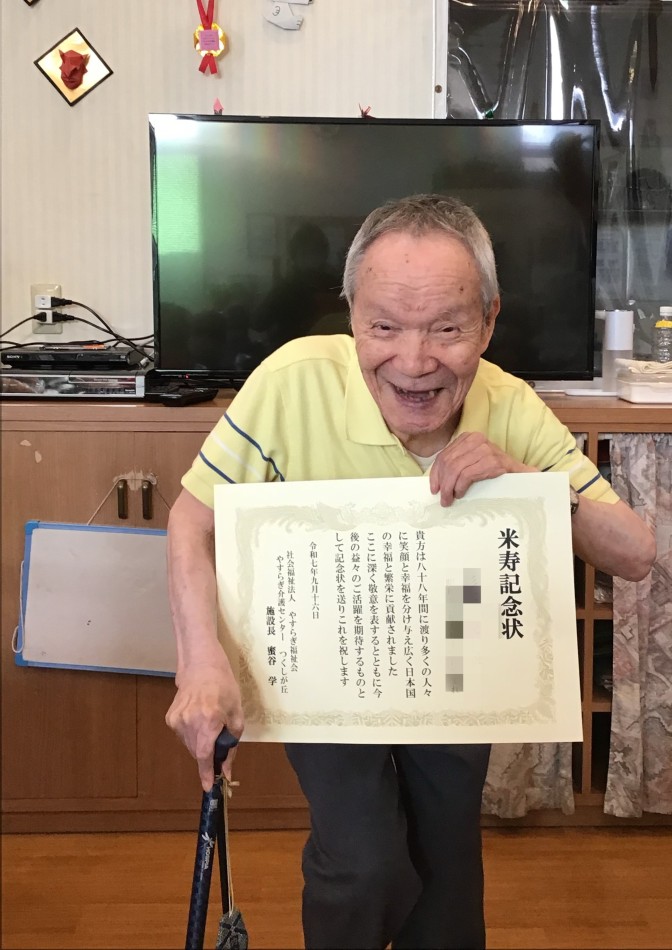 米寿記念状
貴方は八十八年間に渡り多くの人々
に笑顔と幸福を分け与え広く日本国
の幸福と繁栄に貢献されました
ここに深く敬意を表するとともに今
後の益々のご活躍を期待するものと
して記念状を送りこれを祝します
令和七年九月十六日
社会福祉法人 やすらぎ福祉会
やすらぎ介護センター つくしが丘
施設長 蜜谷 学